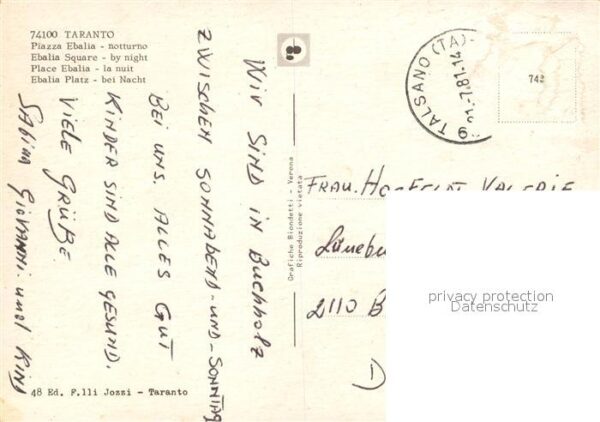 74100 TARANTO
Piazza Ebalia - notturno
Ebalia Square - by night
Place Ebalia - la nuit
Ebalia Platz - bei Nacht
WIR SIND IN BUCHHOLZ
ZWISCHEN SONNABEND-UND-SONNTAG
BEI UNS. ALLES GUT
KINDER SIND ALLE GESUND.
VIELE GRÜßE.
SABINA GIOVANNI. UND KIND
48 Ed. F.lli Jozzi - Taranto
Grafiche Biondetti - Verona
Riproduzione vietata
TALSANO (TA)
7.81-14
743
FRAU. VALERIE
Lünebu
2110 B
D
privacy protection
Datenschutz